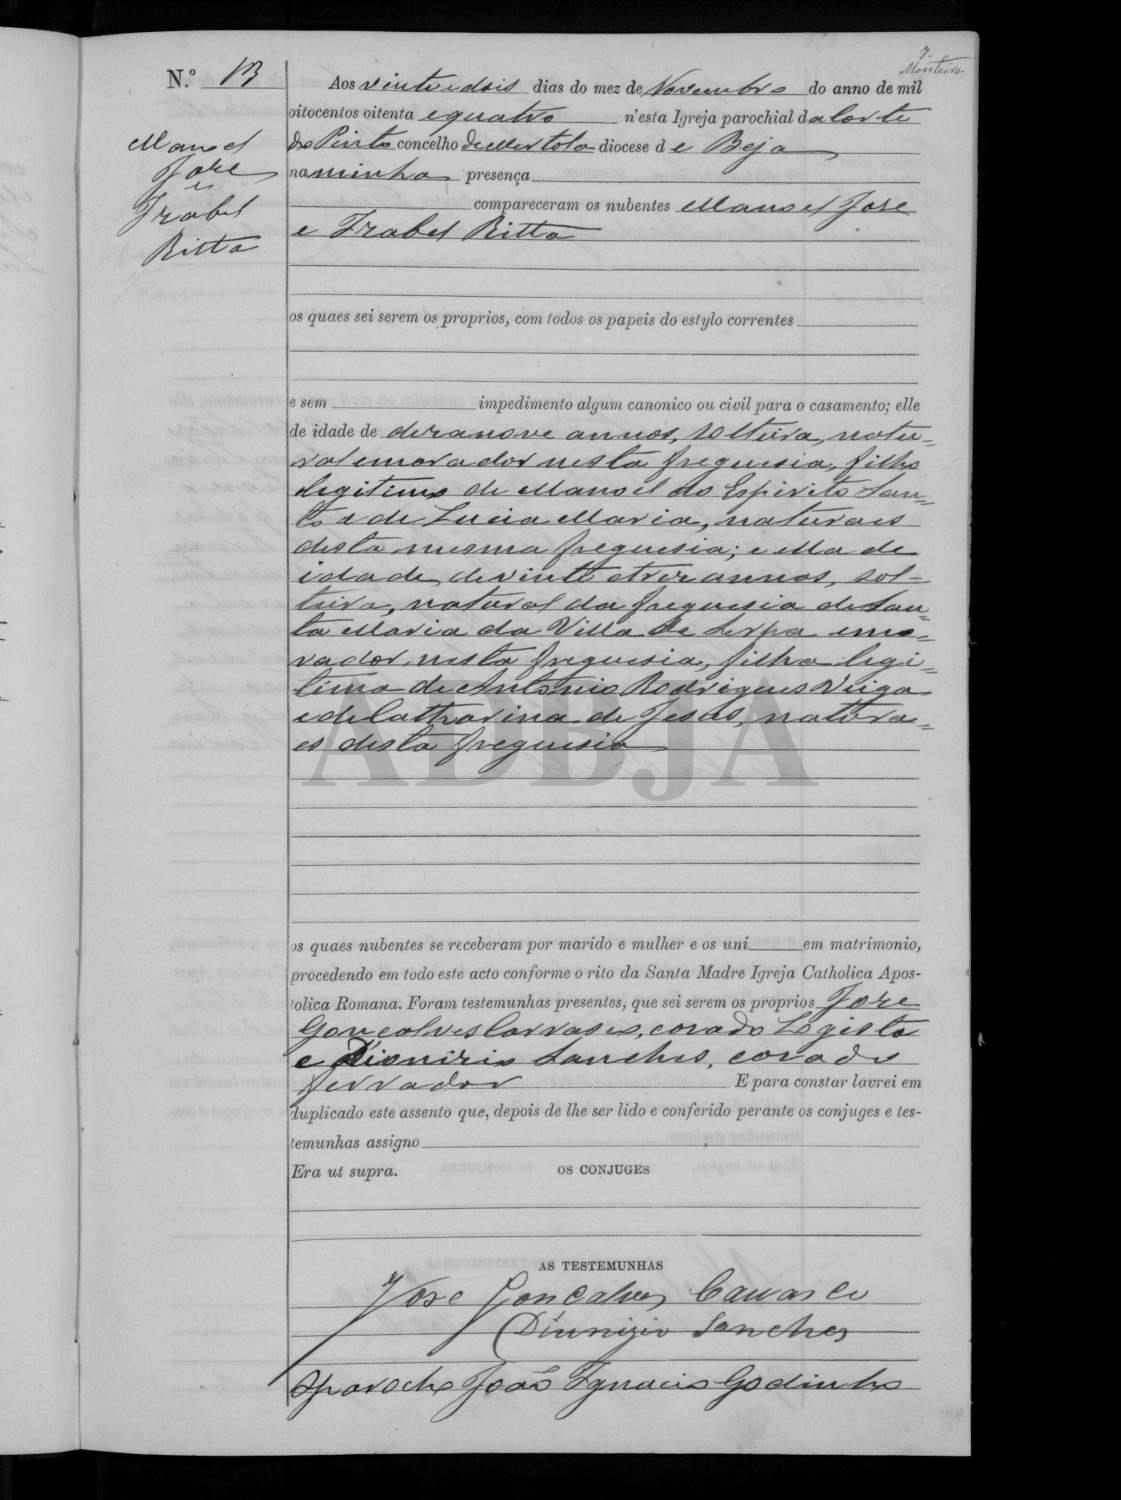 7.
Monteiro
N.º 13
Manoel
José
e
Izabel
Ritta
Aos vinte e dois dias do mez de Novembro do anno de mil
oitocentos oitenta e quatro n'esta Igreja parochial da Corte
do Pinto concelho de Mertola diocese de Beja
na minha presença
compareceram os nubentes Manoel José
e Izabel Ritta
os quaes sei serem os proprios, com todos os papeis do estylo correntes
e sem impedimento algum canonico ou civil para o casamento; elle
de idade de dezanove annos, solteiro, natu=
ral e morador nesta freguesia, filho
legitimo de Manoel do Espirito San=
to e de Lucia Maria, naturaes
desta mesma freguesia; e ella de
idade de vinte e trez annos, sol=
teira, natural da freguesia de San=
ta Maria da Villa de Serpa e mo=
rador nesta freguesia, filha legi=
tima de Antonio Rodrigues Veiga
e de Catharina de Jesus, natura=
es desta freguesia
ADBJA
os quaes nubentes se receberam por marido e mulher e os uni em matrimonio,
procedendo em todo este acto conforme o rito da Santa Madre Igreja Catholica Apos-
tolica Romana. Foram testemunhas presentes, que sei serem os proprios José
Gonçalves Carrasco, casado Logista
e Dionizio Sanches, casado
ferrador E para constar lavrei em
duplicado este assento que, depois de lhe ser lido e conferido perante os conjuges e tes-
temunhas assigno
Era ut supra. OS CONJUGES
AS TESTEMUNHAS
Jose Gonçalves Carrasco
Dionizio Sanches
O parocho João Ignacio Godinho